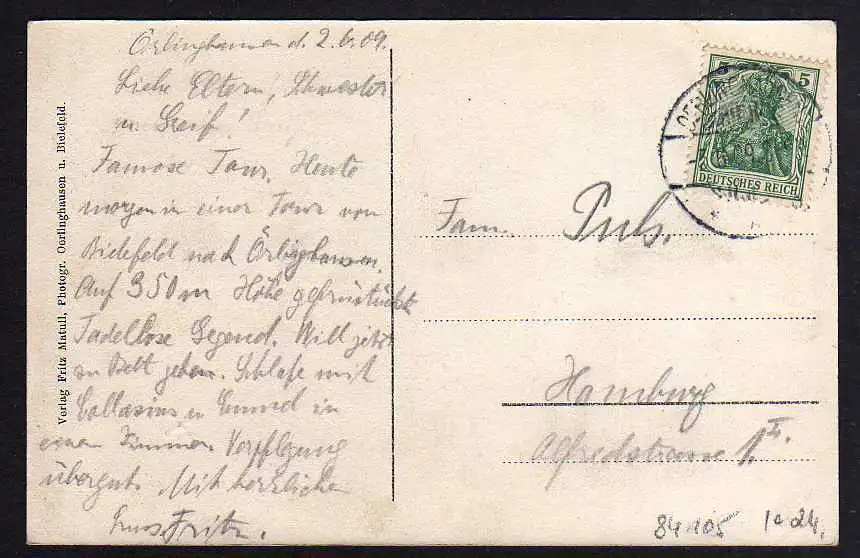 Örlinghausen d. 2.6.09.
Liebe Eltern, Schwester
u. Greif!
Famose Tour. Heute
morgen in einer Tour von
Bielefeld nach Örlinghausen.
Auf 350m Höhe gefrühstückt.
Tadellose Gegend. Will jetzt
zu Bett gehen. Schlafe mit
u in
einem Zimmer. Verpflegung
übergut. Mit herzlichem
Gruss Fritz.
Verlag Fritz Matull, Photogr. Oerlinghausen u. Bielefeld.
5
DEUTSCHES REICH
Fam. Puls.
Hamburg
Alfredstrasse
84 105